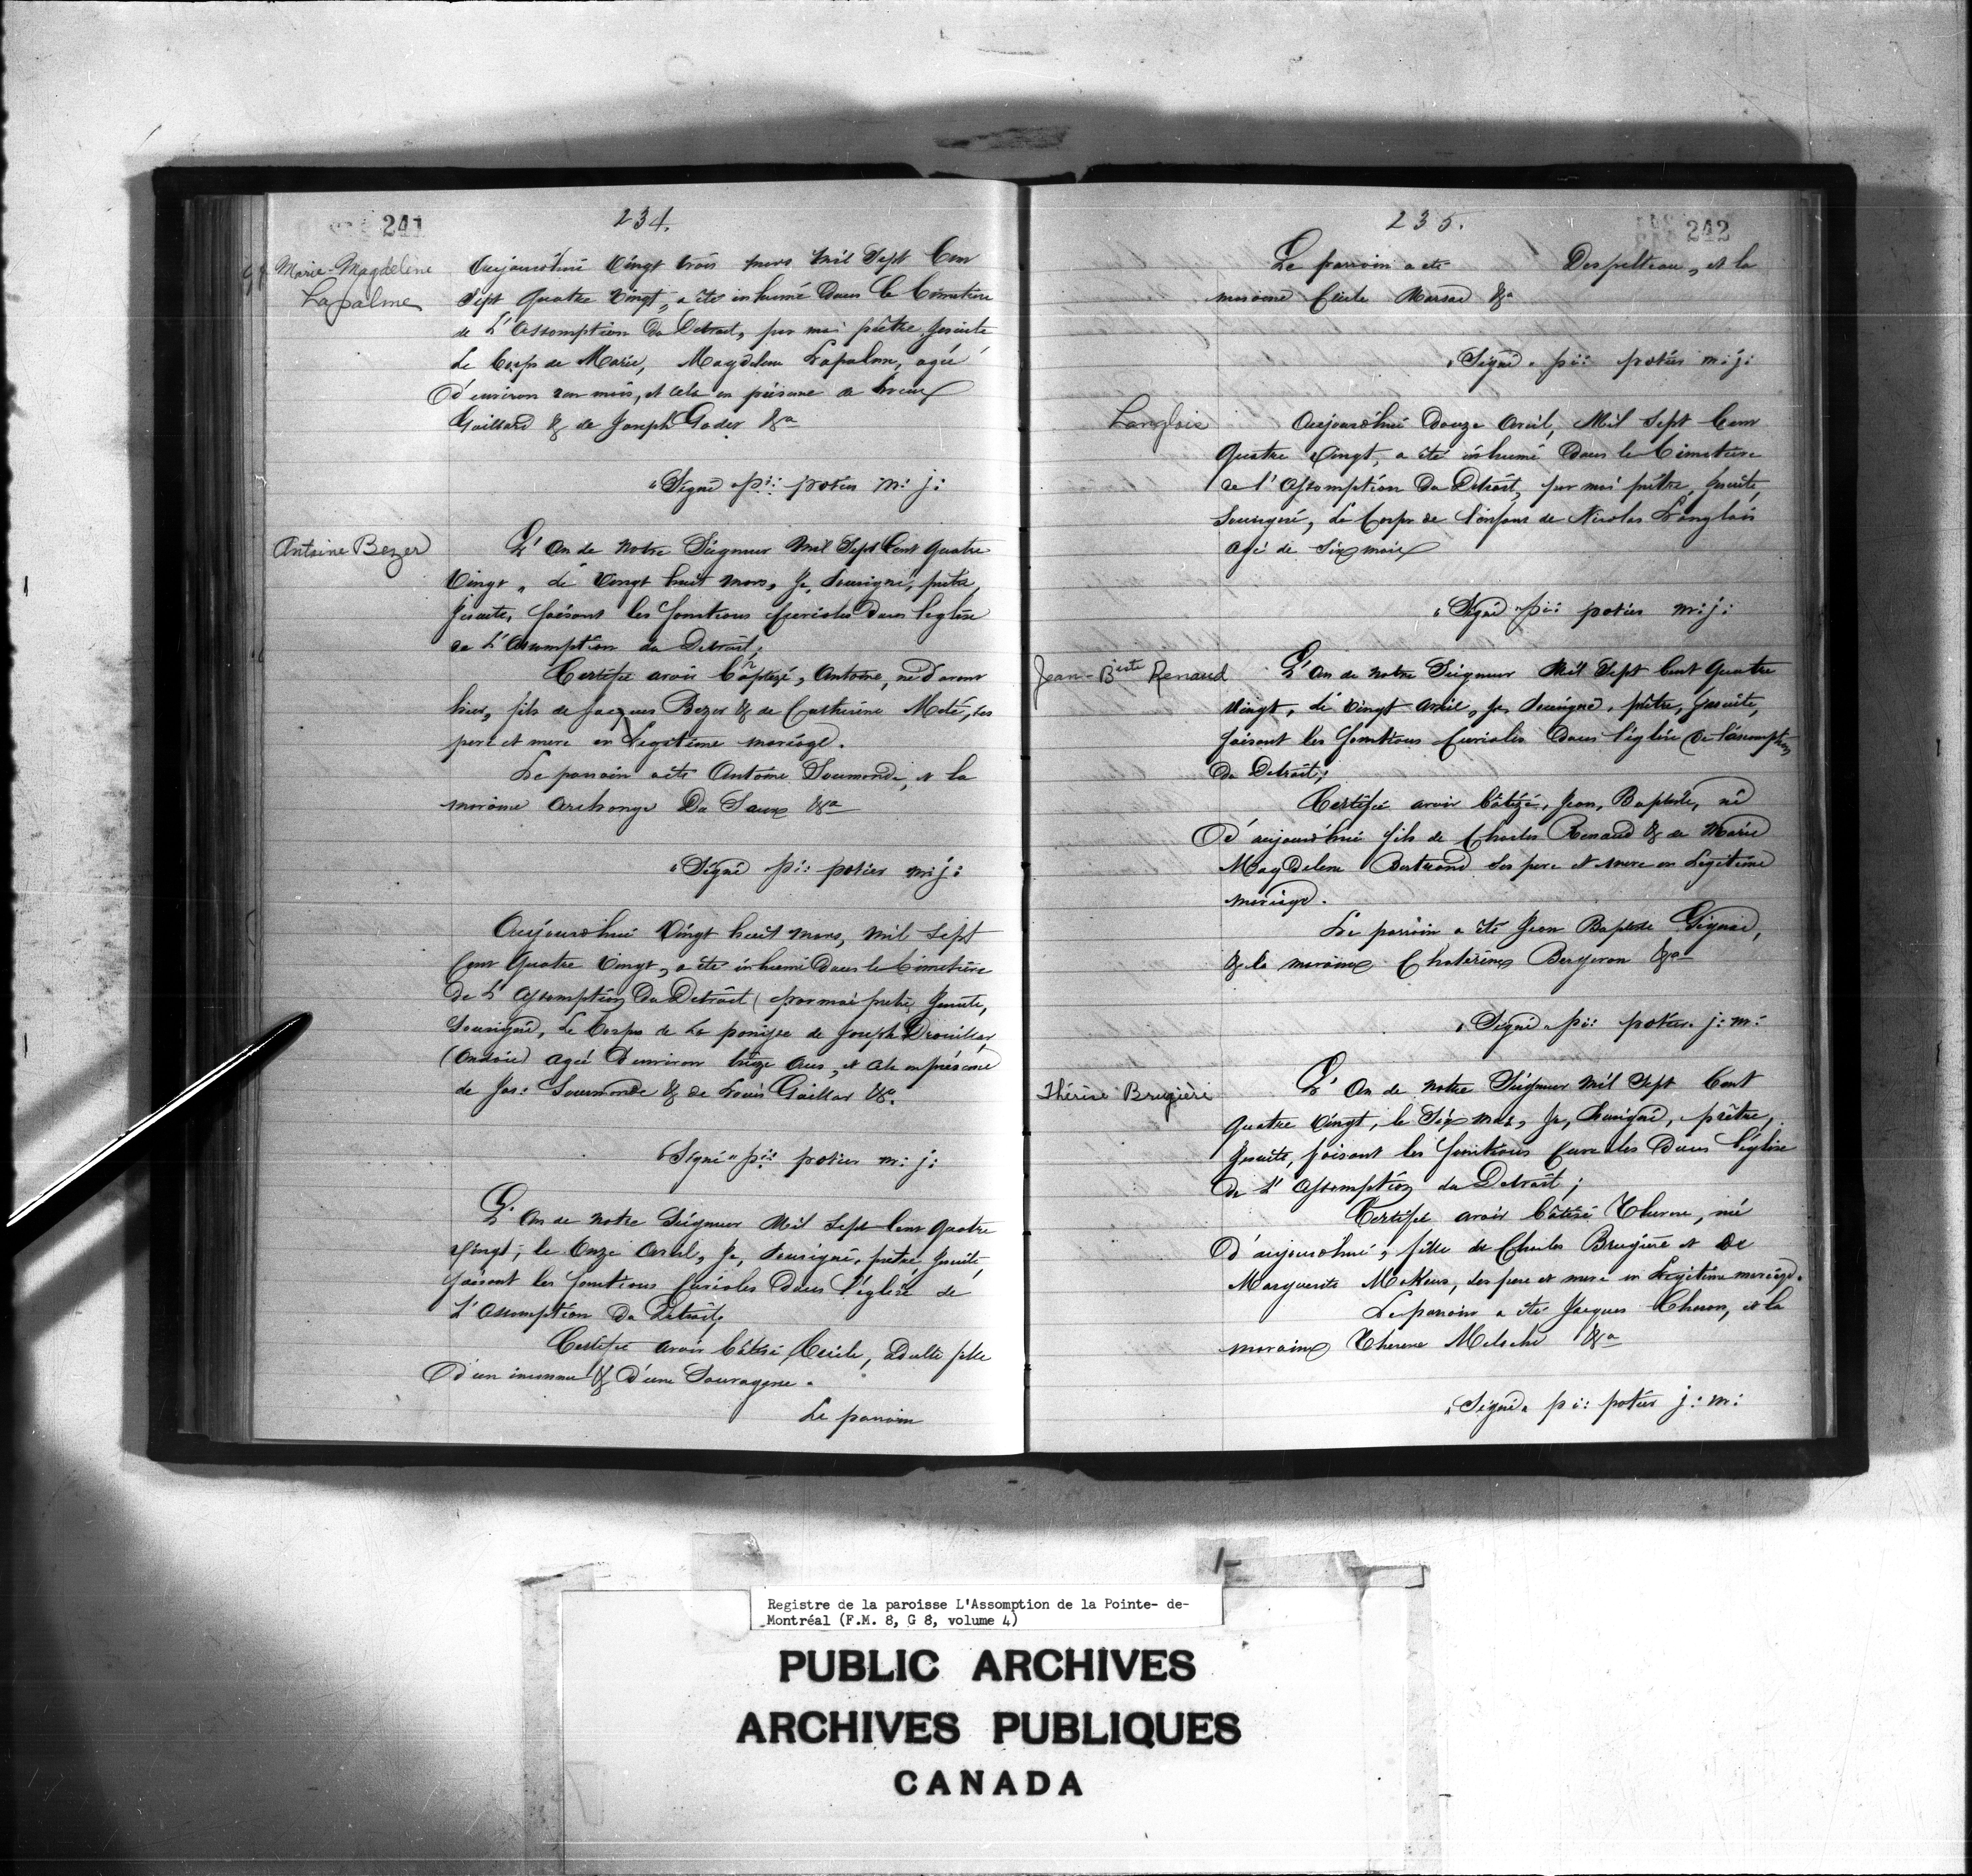 241
234.
Marie-Magdeleine
Lapalme
Aujourd'hui Vingt trois mars Mil Sept Cent
Sept Quatre Vingt, a été inhumé Dans le Cimetière
de L'Assomption du Detroit, par moi prêtre Jesuite
Le Corps de Marie, Magdelene Lapalme, agée
D'environ un mois, et cela en présence de
Gaillard & de Joseph Goder &a
"Signé" pi: potier m: j:
Antoine Bezer
L'An de Notre Seigneur Mil Sept Cent Quatre
Vingt, le Vingt huit Mars, Je, Sousigné, prêtre
Jesuite, faisant les fonctions Curiales Dans l'eglise
de L'Assomption du Detroit;
Certifie avoir baptizé, Antoine, né d'avant
hier, fils de Jacques Bezer & de Catherine Meté, ses
pere et mere en Legitime mariage.
Le parrain a été Antoine Soumande, et la
maraine Archange Du Saux &a
"Signé pi: potier m: j:
Aujourd'hui Vingt huit Mars, Mil Sept
Cent Quatre Vingt, a été inhumé Dans le Cimetière
de L'Assomption Du Detroit par moi prêtre Jesuite,
Sousigné, Le Corps de La panisse de Joseph Drouillar
agé D'environ treize ans, et cela en présence
de Jos: Soumande & de Louis Gaillar &a.
"Signé" pi: potier m: j:
L'An de Notre Seigneur Mil Sept Cent Quatre
Vingt, le Onze Avril, Je, Sousigné, prêtre Jesuite,
faisant les fonctions Curiales Dans l'église de
L'Assomption Du Detroit
Certifie avoir bâtisé Cecile, adulte fille
D'un inconnu & D'une Sauvagesse.
Le parrain
242
235.
Le parrain a été Despelteau, et la
maraine Cecile Marsac &a
"Signé" pi: potier m: j:
Langlois
Aujourd'hui Douze Avril, Mil Sept Cent
Quatre Vingt, a été inhumé Dans le Cimetiere
de l'Assomption Du Detroit, par moi prêtre Jesuite,
Sousigné, Le Corps de l'enfant de Nicolas Langlois
agé de Six mois
"Signé" pi: potier m: j:
Jean-Biste Renaud
L'An de Notre Seigneur Mil Sept Cent Quatre
Vingt, le Vingt Avril, Je, Sousigné, prêtre, Jesuite,
faisant les fonctions Curiales Dans l'église De l'assomption
Du Detroit;
Certifie avoir bâtizé, Jean, Baptiste, né
D'aujourd'hui fils de Charles Renaud & de Marie
Magdelene Bertrand ses pere et mere en Legitime
mariage.
Le parrain a été Jean Baptiste Gignac,
& la maraine Chaterine Bergeron &a
"Signé" pi: potier j: m:
Thérèse Brugière
L'An de Notre Seigneur Mil Sept Cent
Quatre Vingt, le Six Mai, Je, Sousigné, prêtre,
Jesuite, faisant les fonctions Curiales Dans l'église
de L'Assomption du Detroit;
Certifie avoir bâtisé Therese, née
D'aujourd'hui, fille de Charles Brugière et de
Marguerite Mekeus, ses pere et mere en Legitime mariage.
Le parrain a été Jacques Cheron, et la
maraine Therese Meloche &a
"Signé" pi: potier j: m:
Registre de la paroisse L'Assomption de la Pointe- de-
Montréal (F.M. 8, G 8, volume 4)
PUBLIC ARCHIVES
ARCHIVES PUBLIQUES
CANADA